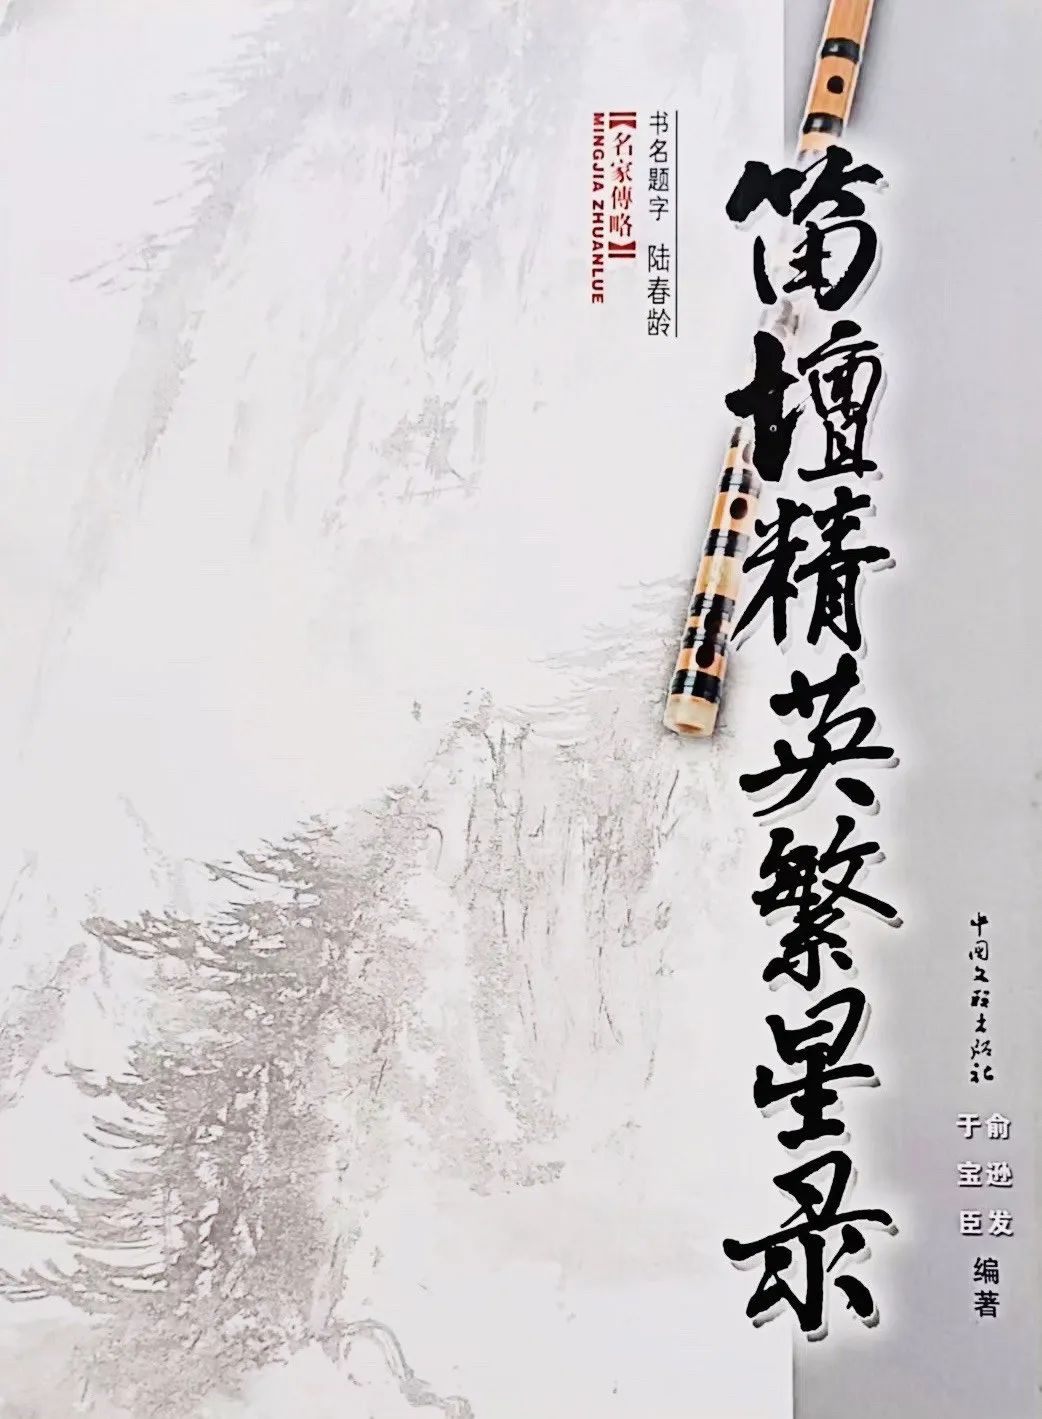 笛壇精英繁星录
书名题字 陆春龄
【名家傳略】
MINGJIA ZHUANLUE
中国文联出版社
俞逊发
于宝臣
编著